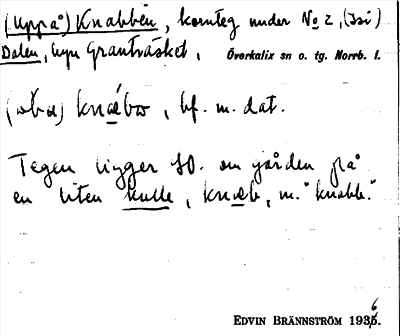 (Uppå) Knabben, kornteg under No 2, (Isi)
Dalen, byn Granträsket, Överkalix sn o. tg. Norrb. l.
knæ̀bω, bf. m. dat.
Tegen ligger SO. om gården på
en liten kulle, knæb, m. "knabb."
EDVIN BRÄNNSTRÖM 1936.